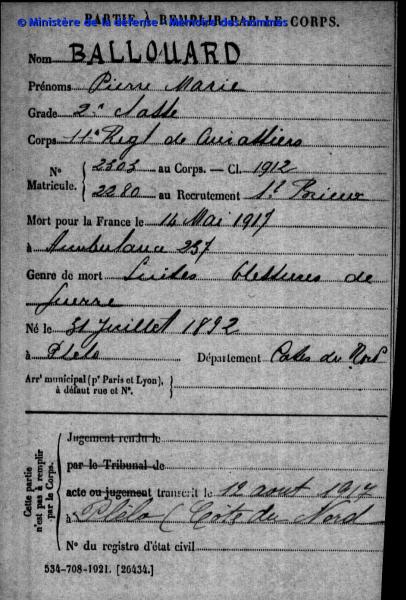 © Ministère de la défense - Mémoire des hommes
PARTIE À REMPLIR PAR LE CORPS.
Nom BALLOUARD
Prénoms Pierre Marie
Grade 2e Classe
Corps 11e Regt de Cuirassiers
N° Matricule. { 2303 au Corps. — Cl. 1912
2280 au Recrutement St Brieuc
Mort pour la France le 14 Mai 1917
à Ambulance 237
Genre de mort Suites blessures de
guerre
Né le 31 Juillet 1892
à Plélo Département Côtes du Nord
Arrt municipal (pr Paris et Lyon),
à défaut rue et N°.
Cette partie n'est pas à remplir par le Corps.
Jugement rendu le
par le Tribunal de
acte ou jugement transcrit le 12 aout 1917
à Plélo (Côte du Nord
N° du registre d'état civil
534-708-1921. [26434.]